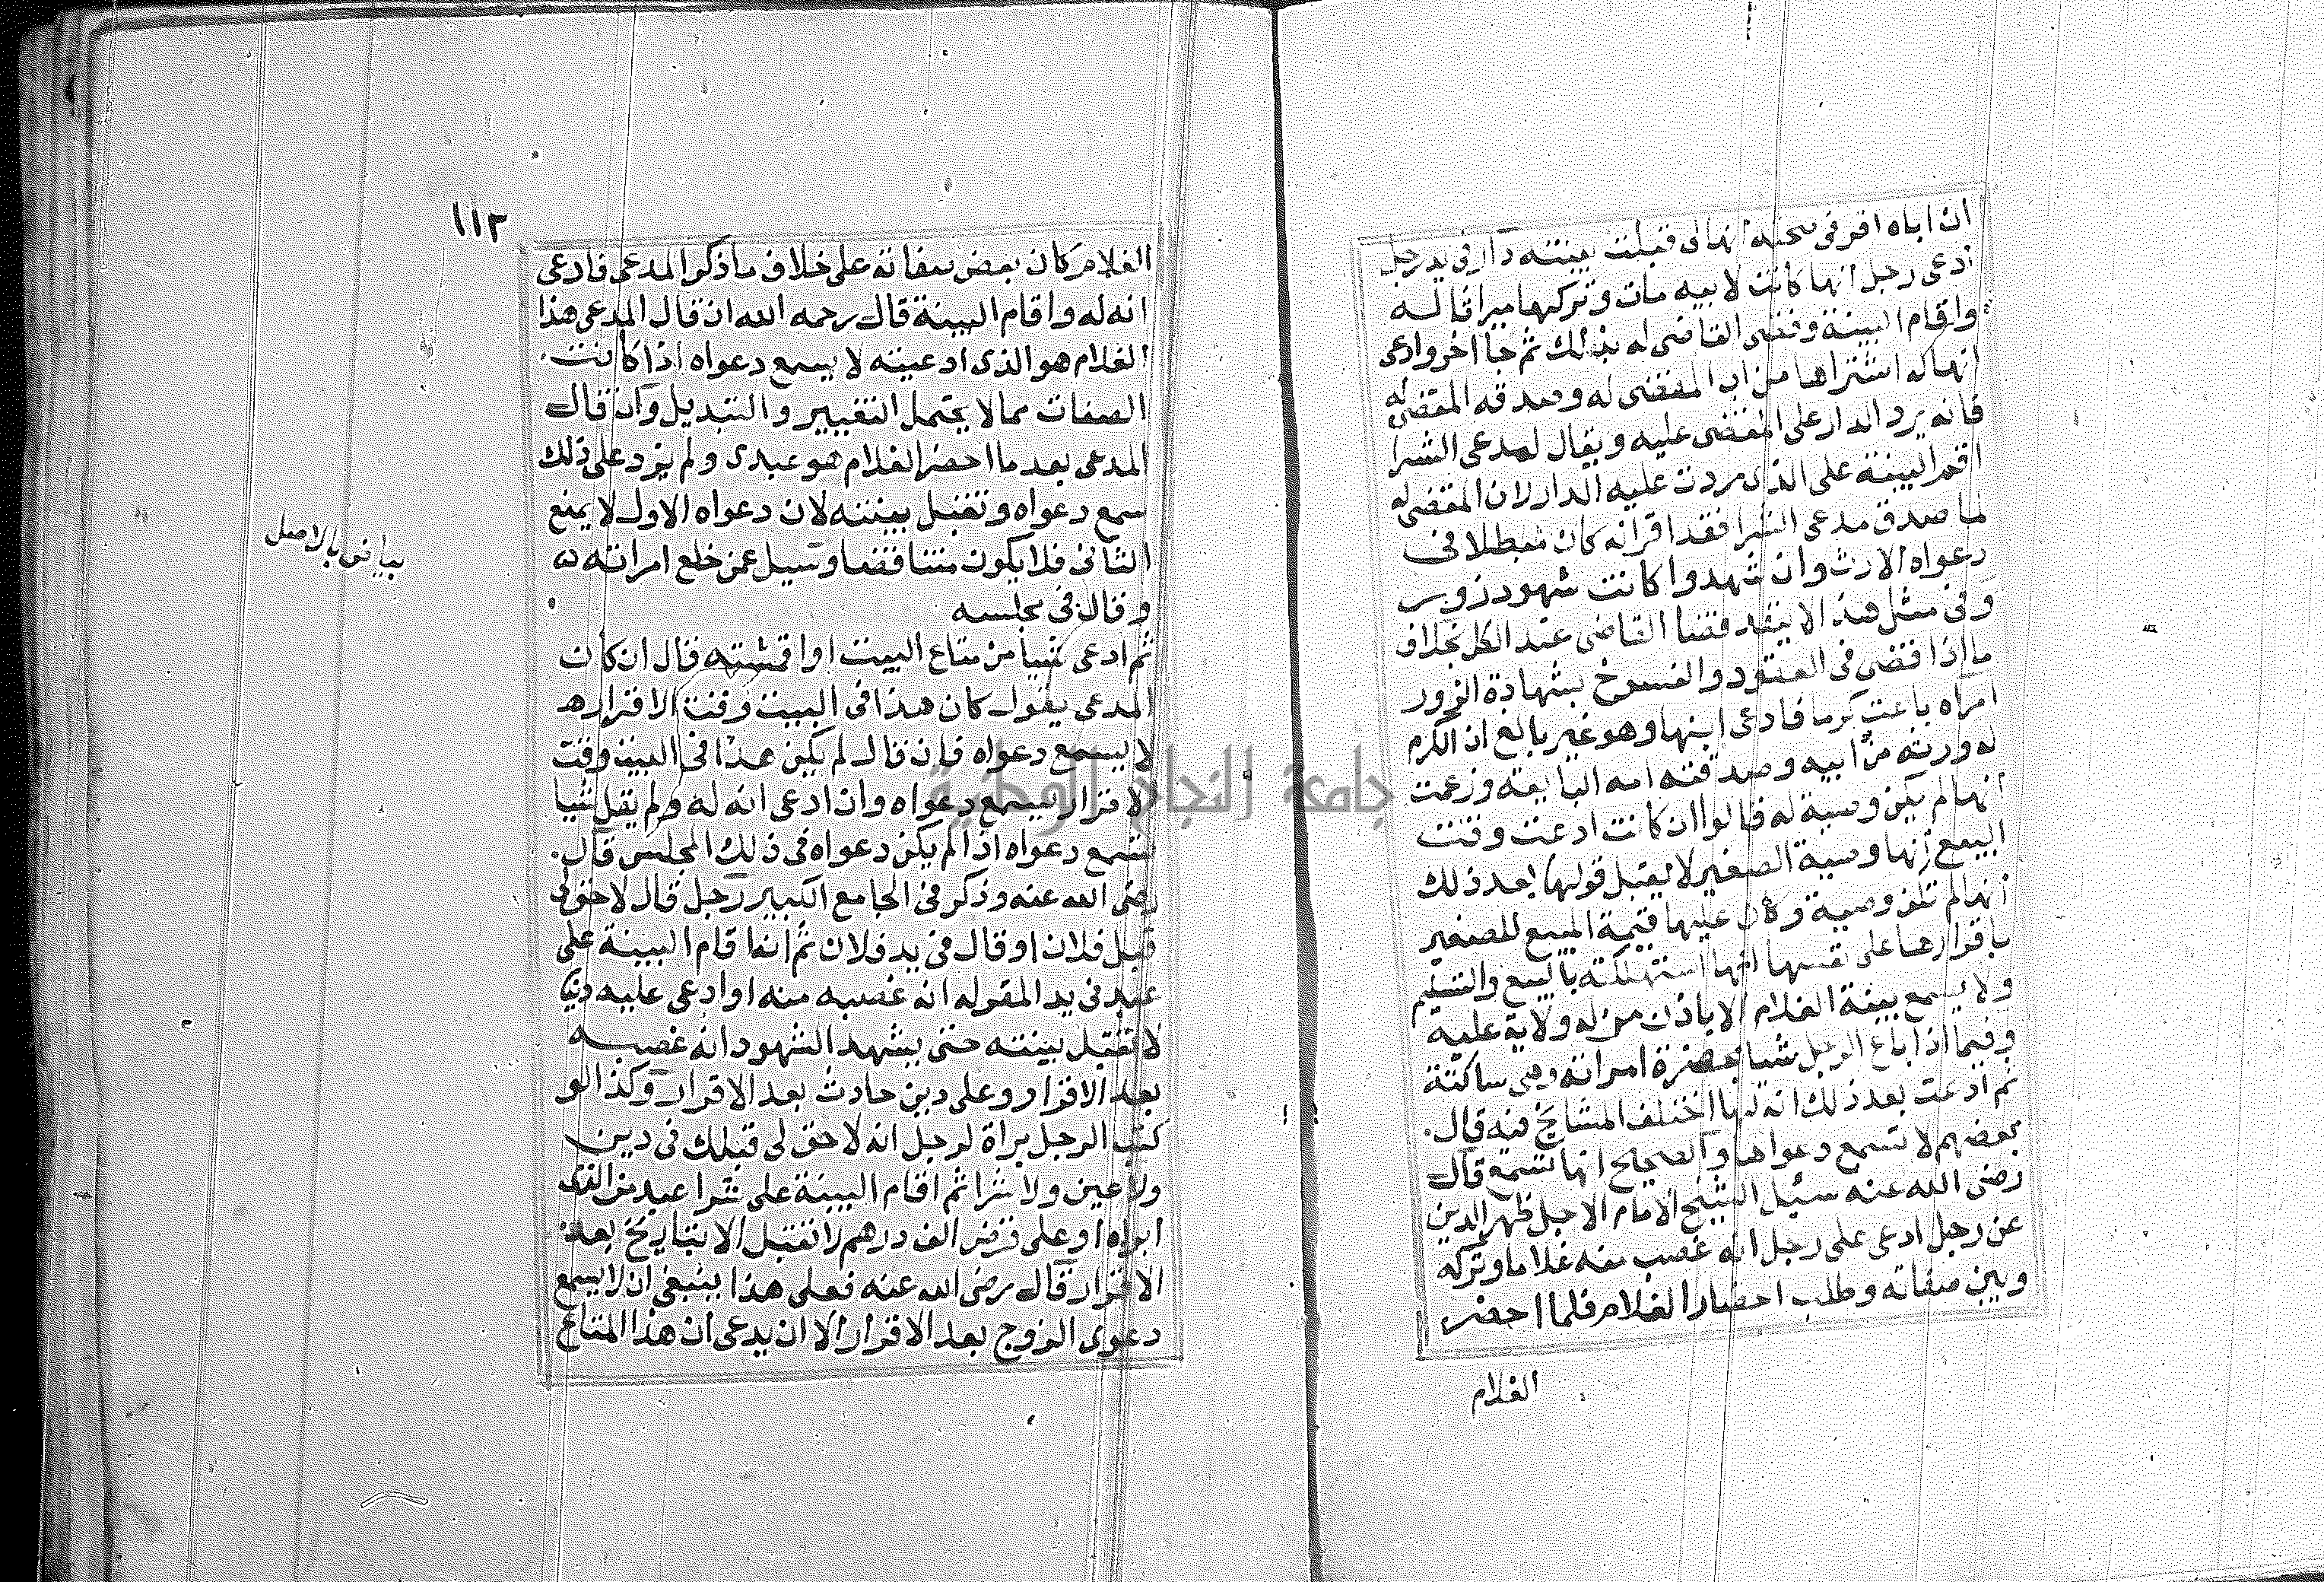 ان اباه اقر في صحته انها لي قبلت بينته دار في يد رجل
ادعى رجل انها كانت لابيه مات وتركها ميراثا له
واقام البينة وقضى القاضي له بذلك ثم جا اخر وادعى
انها له اشتراها من اب المقضى له وصدقه المقضى له
فانه يرد الدار على المقضى عليه ويقال لمدعى الشرا
اقم البينة على الذي ردت عليه الدار لان المقضى له
لما صدق مدعى الشرا فقد اقر انه كان مبطلا في
دعواه الارث وان شهدوا كانت شهود زور
وفي مثل هذا لا ينفد قضا القاضي عند الكل بخلاف
ما اذا قضى في العقود والفسوخ بشهادة الزور
امراه باعت كرما فادعى ابنها وهو غير بالغ ان الكرم
له ورثه من ابيه وصدقته امه البايعة وزعمت
انها لم يكن وصية له قالوا ان كانت ادعت وقت
البيع انها وصية الصغير لا يقبل قولها بعد ذلك
انها لم تكن وصية وكان عليها قيمة المبيع للصغير
باقرارها على نفسها انها استهلكته بالبيع والتسليم
ولا يسمع بينة الغلام الا باذن من له ولاية عليه
وفيما اذا باع الرجل شيا بحضرة امراته وهي ساكتة
ثم ادعت بعد ذلك انه لها اختلف المشايخ فيه قال
بعضهم لا تسمع دعواها والصحيح انها تسمع قال
رضى الله عنه سئيل الشيخ الامام الاجل ظهر الدين
عن رجل ادعى على رجل انه غصب منه غلاما وتركه
وبين صفاته وطلب احضار الغلام فلما احضر
الغلام
١١٢
الغلام كان بعض صفاته على خلاف ما ذكر المدعى فادعى
انه له واقام البينة قال رحمه الله ان قال المدعى هذا
الغلام هو الذي ادعيته لا يسمع دعواه اذا كانت
الصفات مما لا يحتمل التغيير والتبديل وان قال
المدعى بعد ما احضر الغلام هو عبدى ولم يزد على ذلك
سمع دعواه وتقبل بينته لان دعواه الاول لا يمنع
الثاني فلا يكون متناقضا وسيل عمن خلع امراته
وقال في مجلسه
ثم ادعى شيا من متاع البيت او اقمشته قال ان كان
المدعى يقول كان هذا في البيت وقت الاقرار
لا يسمع دعواه فان قال لم يكن هذا في البيت وقت
الاقرار يسمع دعواه وان ادعى انه له ولم يقل شيا
تسمع دعواه اذا لم يكن دعواه في ذلك المجلس قال
رضى الله عنه وذكر في الجامع الكبير رجل قال لا حق لي
قبل فلان او قال في يد فلان ثم اقام البينة على
عبد في يد المقر له انه غصبه منه او ادعى عليه دينا
لا تقبل بينته حتى يشهد الشهود انه غصبه
بعد الاقرار وعلى دين حادث بعد الاقرار وكذا لو
كتب الرجل براة لرجل انه لا حق لي قبلك في دين
ولا عين ولا شرا ثم اقام البينة على شرا عبد من الذى
ابراه او على قرض الف درهم لا تقبل الا بتاريخ بعد
الاقرار قال رضى الله عنه فعلى هذا ينبغى ان لا يسمع
دعوى الزوج بعد الاقرار الا ان يدعى ان هذا المتاع
بياض بالاصل
جامعة النجاح الوطنية